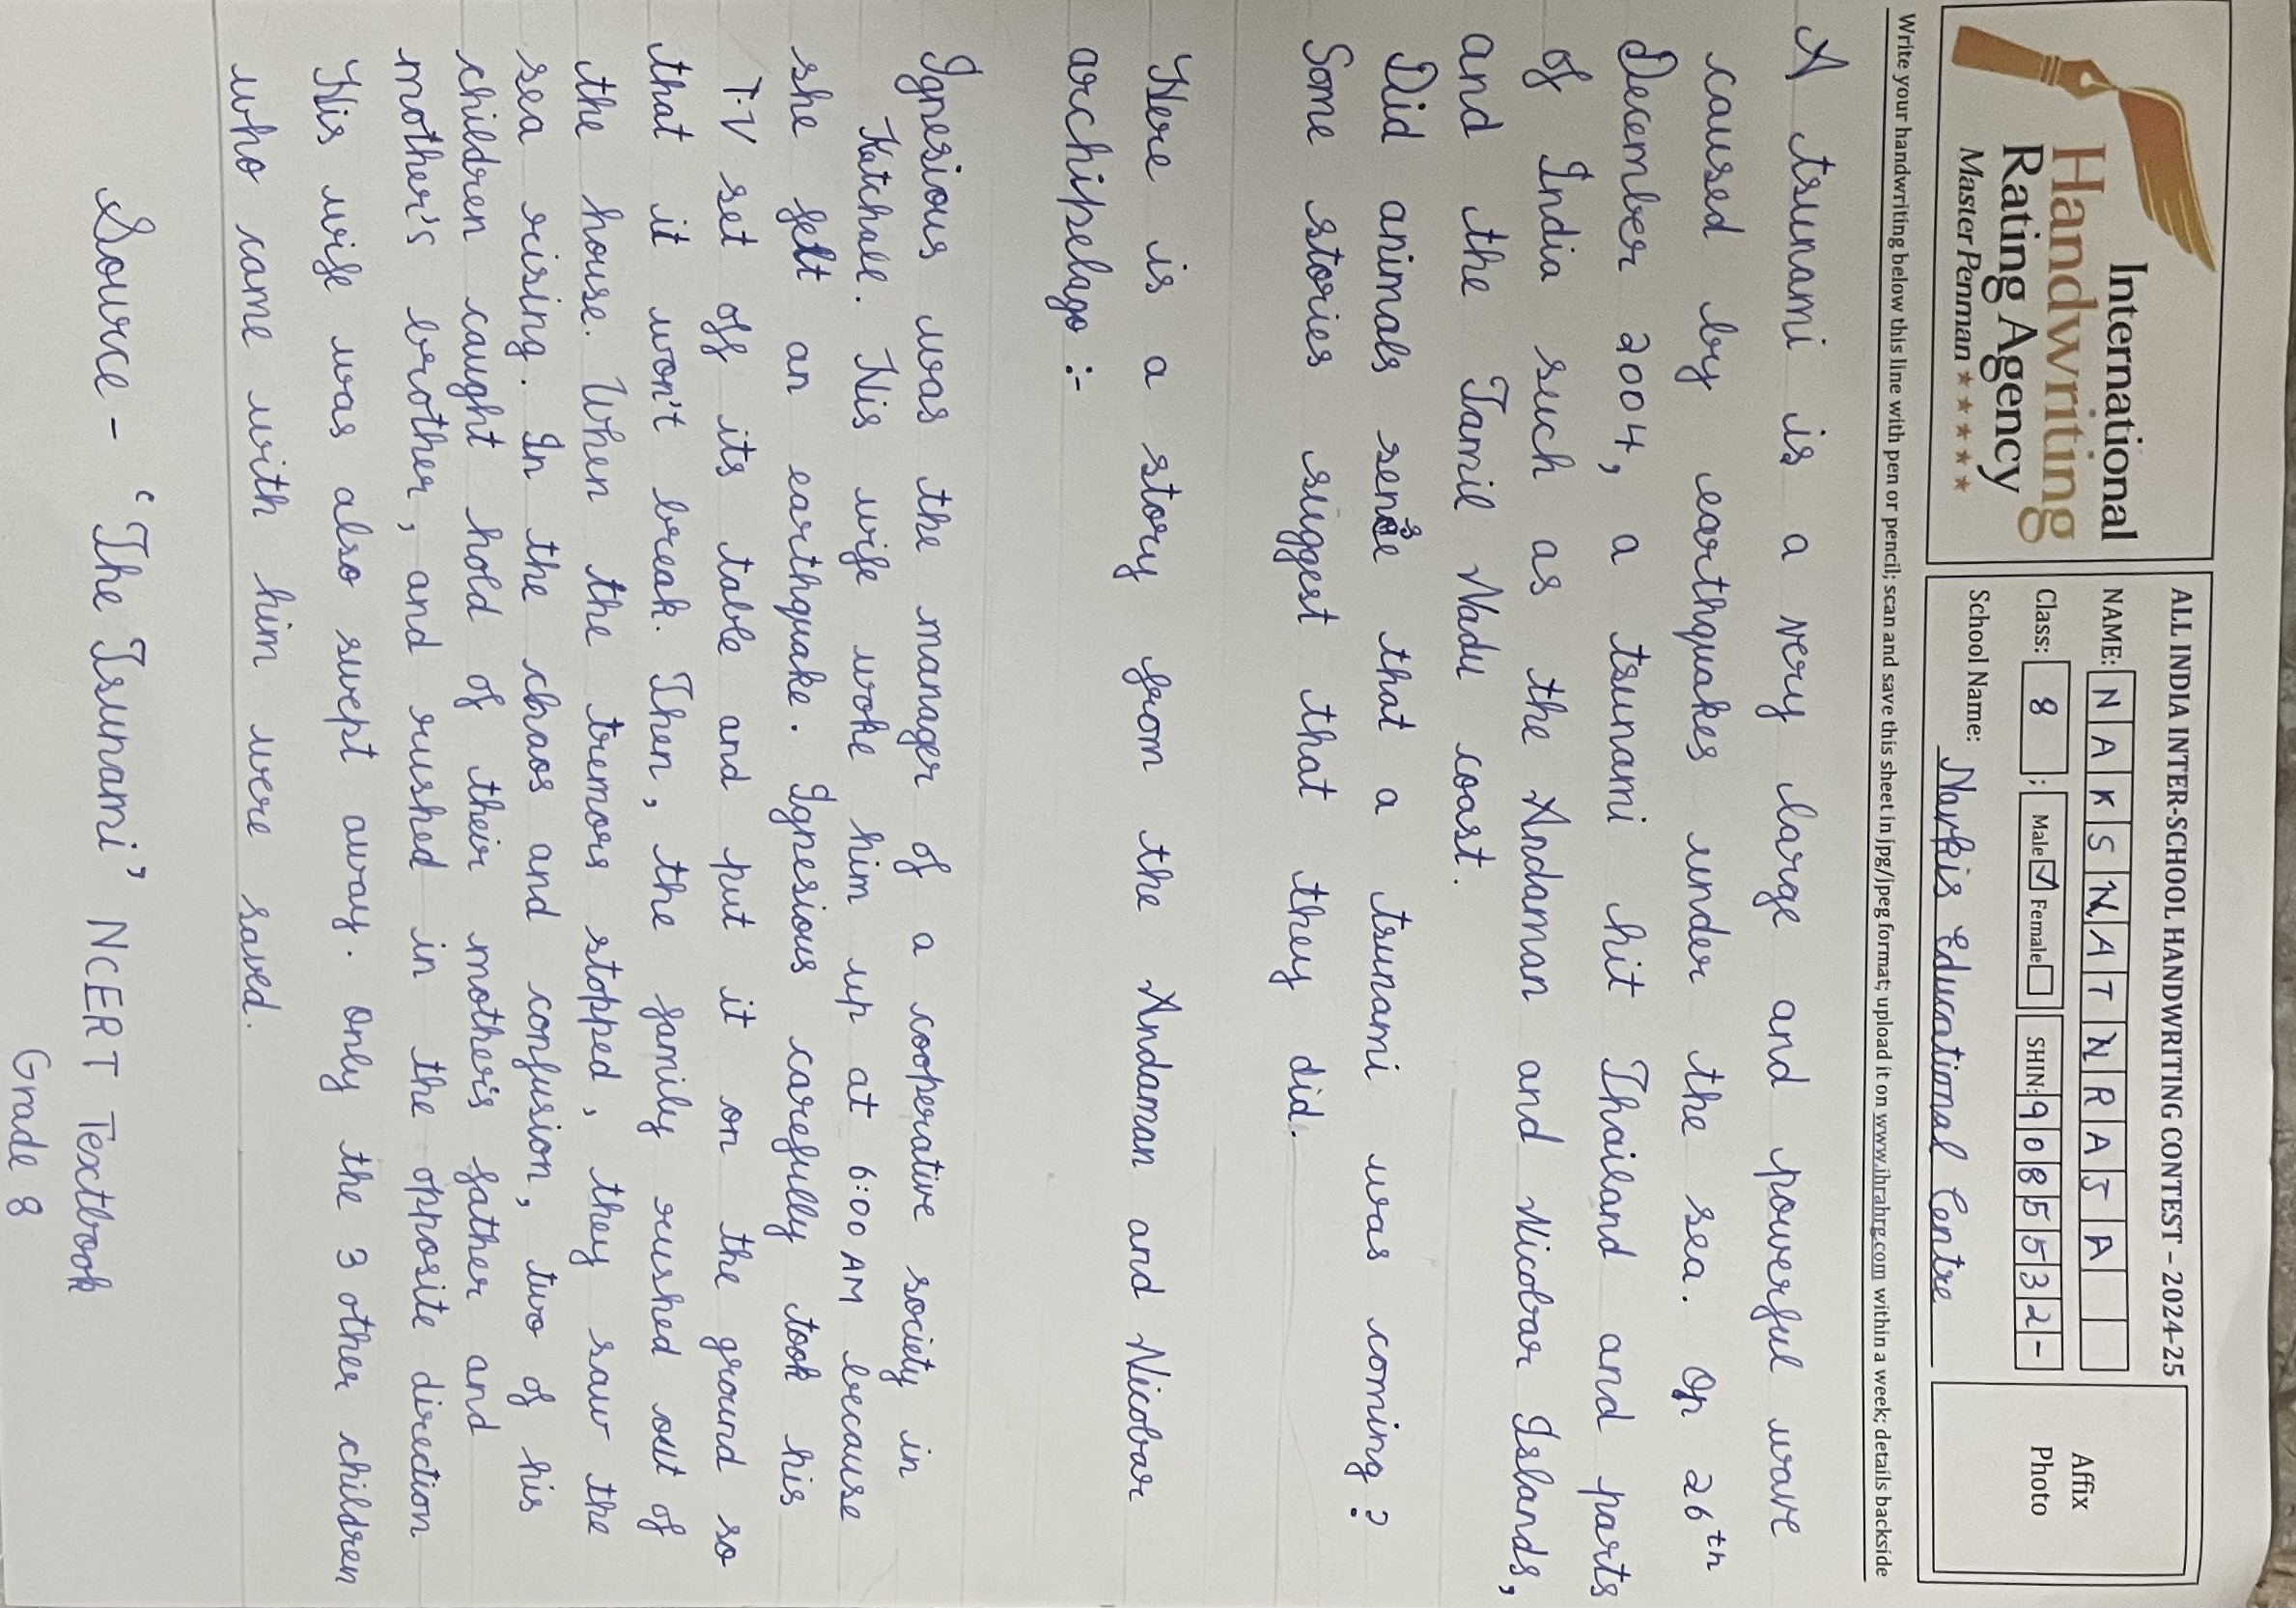 International
Handwriting
Rating Agency
Master Penman ★★★★★
ALL INDIA INTER-SCHOOL HANDWRITING CONTEST – 2024-25
NAME: NAKSNATNRAJA
Class: 8 ; Male ☑ Female ☐ SHIN: 9085532-
School Name: Narkis Educational Centre
Affix
Photo
Write your handwriting below this line with pen or pencil; scan and save this sheet in jpg/jpeg format; upload it on www.ihrahrg.com within a week; details backside
A tsunami is a very large and powerful wave
caused by earthquakes under the sea. On 26th
December 2004, a tsunami hit Thailand and parts
of India such as the Andaman and Nicobar Islands,
and the Tamil Nadu coast.
Did animals sense that a tsunami was coming?
Some stories suggest that they did.
Here is a story from the Andaman and Nicobar
archipelago :-
Ignesious was the manager of a cooperative society in
Katchall. His wife woke him up at 6:00 AM because
she felt an earthquake. Ignesious carefully took his
T.V set off its table and put it on the ground so
that it won't break. Then, the family rushed out of
the house. When the tremors stopped, they saw the
sea rising. In the chaos and confusion, two of his
children caught hold of their mother's father and
mother's brother, and rushed in the opposite direction
His wife was also swept away. Only the 3 other children
who came with him were saved.
Source - ‘The Tsunami’, NCERT Textbook
Grade 8